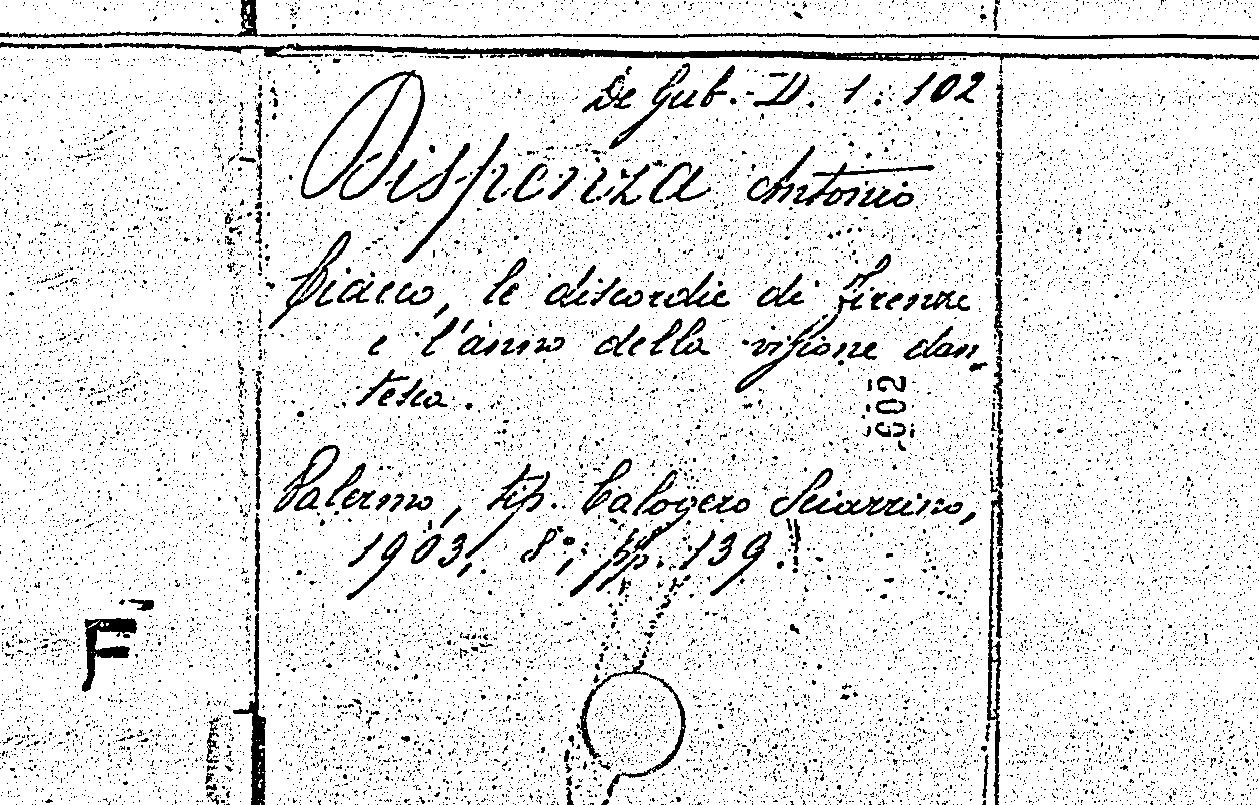 De Gub.-D. 1. 102
Dispenza Antonio
Ciacco, le discordie di Firenze
e l'anno della visione dan-
tesca.
002
Palermo, tip. Calogero Sciarrino,
1903, 8°, pp. 139.
F